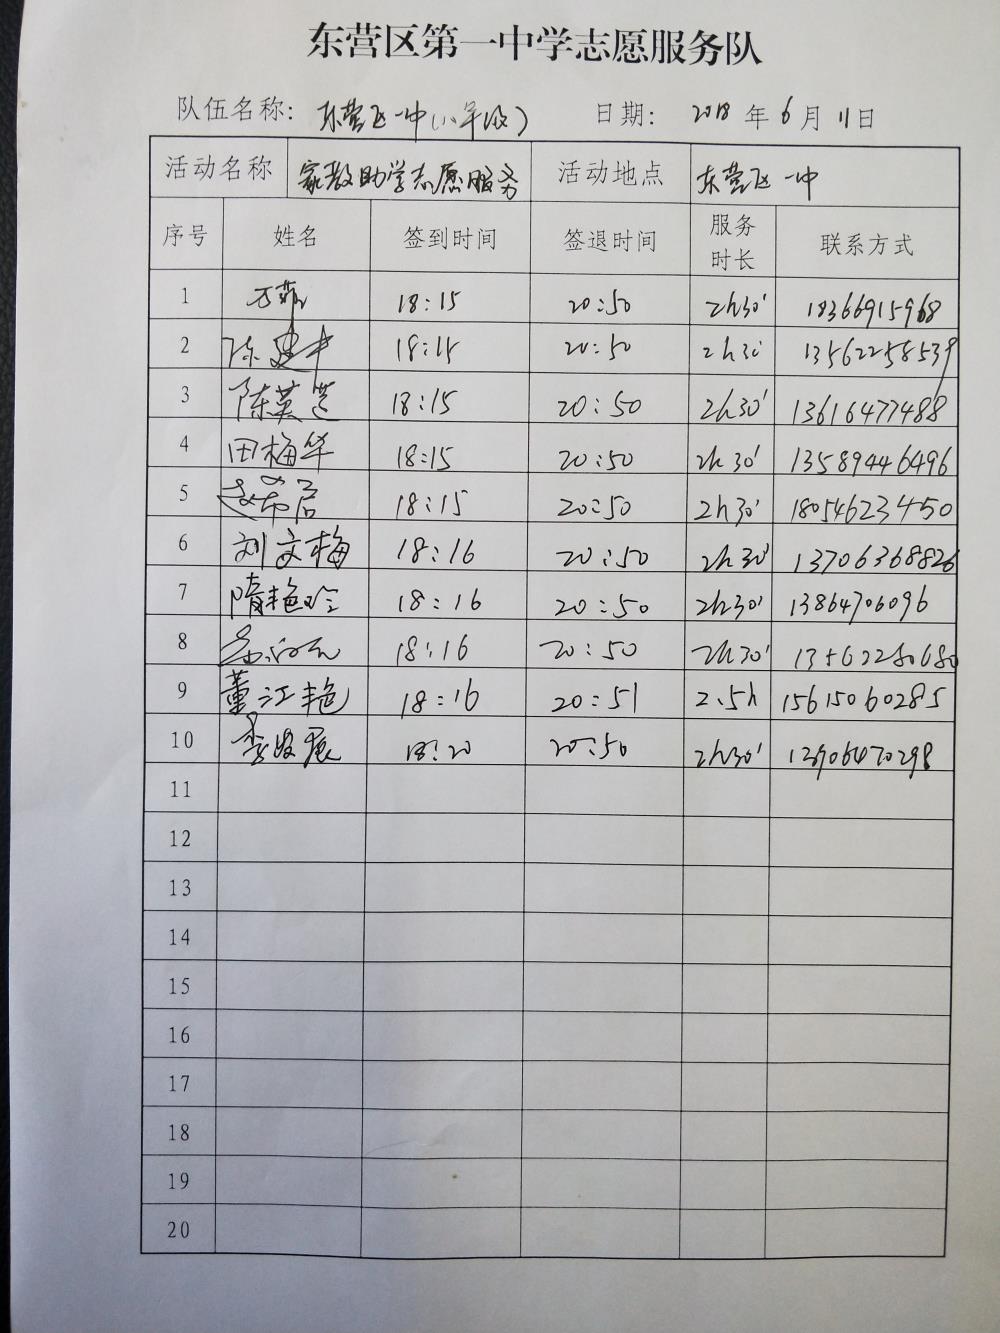 东营区第一中学志愿服务队
队伍名称: 东营区一中(八年级) 日期: 2018 年 6 月 11 日
活动名称 家教助学志愿服务 活动地点 东营区一中
序号 姓名 签到时间 签退时间 服务时长 联系方式
1 万菊 18:15 20:50 2h30' 18366915968
2 陈建中 18:15 20:50 2h30' 13562258539
3 陈英芝 18:15 20:50 2h30' 13616477488
4 田梅华 18:15 20:50 2h30' 13589446496
5 18:15 20:50 2h30' 18054623450
6 刘文梅 18:16 20:50 2h30' 13706368826
7 隋艳玲 18:16 20:50 2h30' 13864706096
8 18:16 20:50 2h30' 13562280680
9 董江艳 18:16 20:51 2.5h 15615060285
10 18:20 20:50 2h30' 13906470298
11
12
13
14
15
16
17
18
19
20